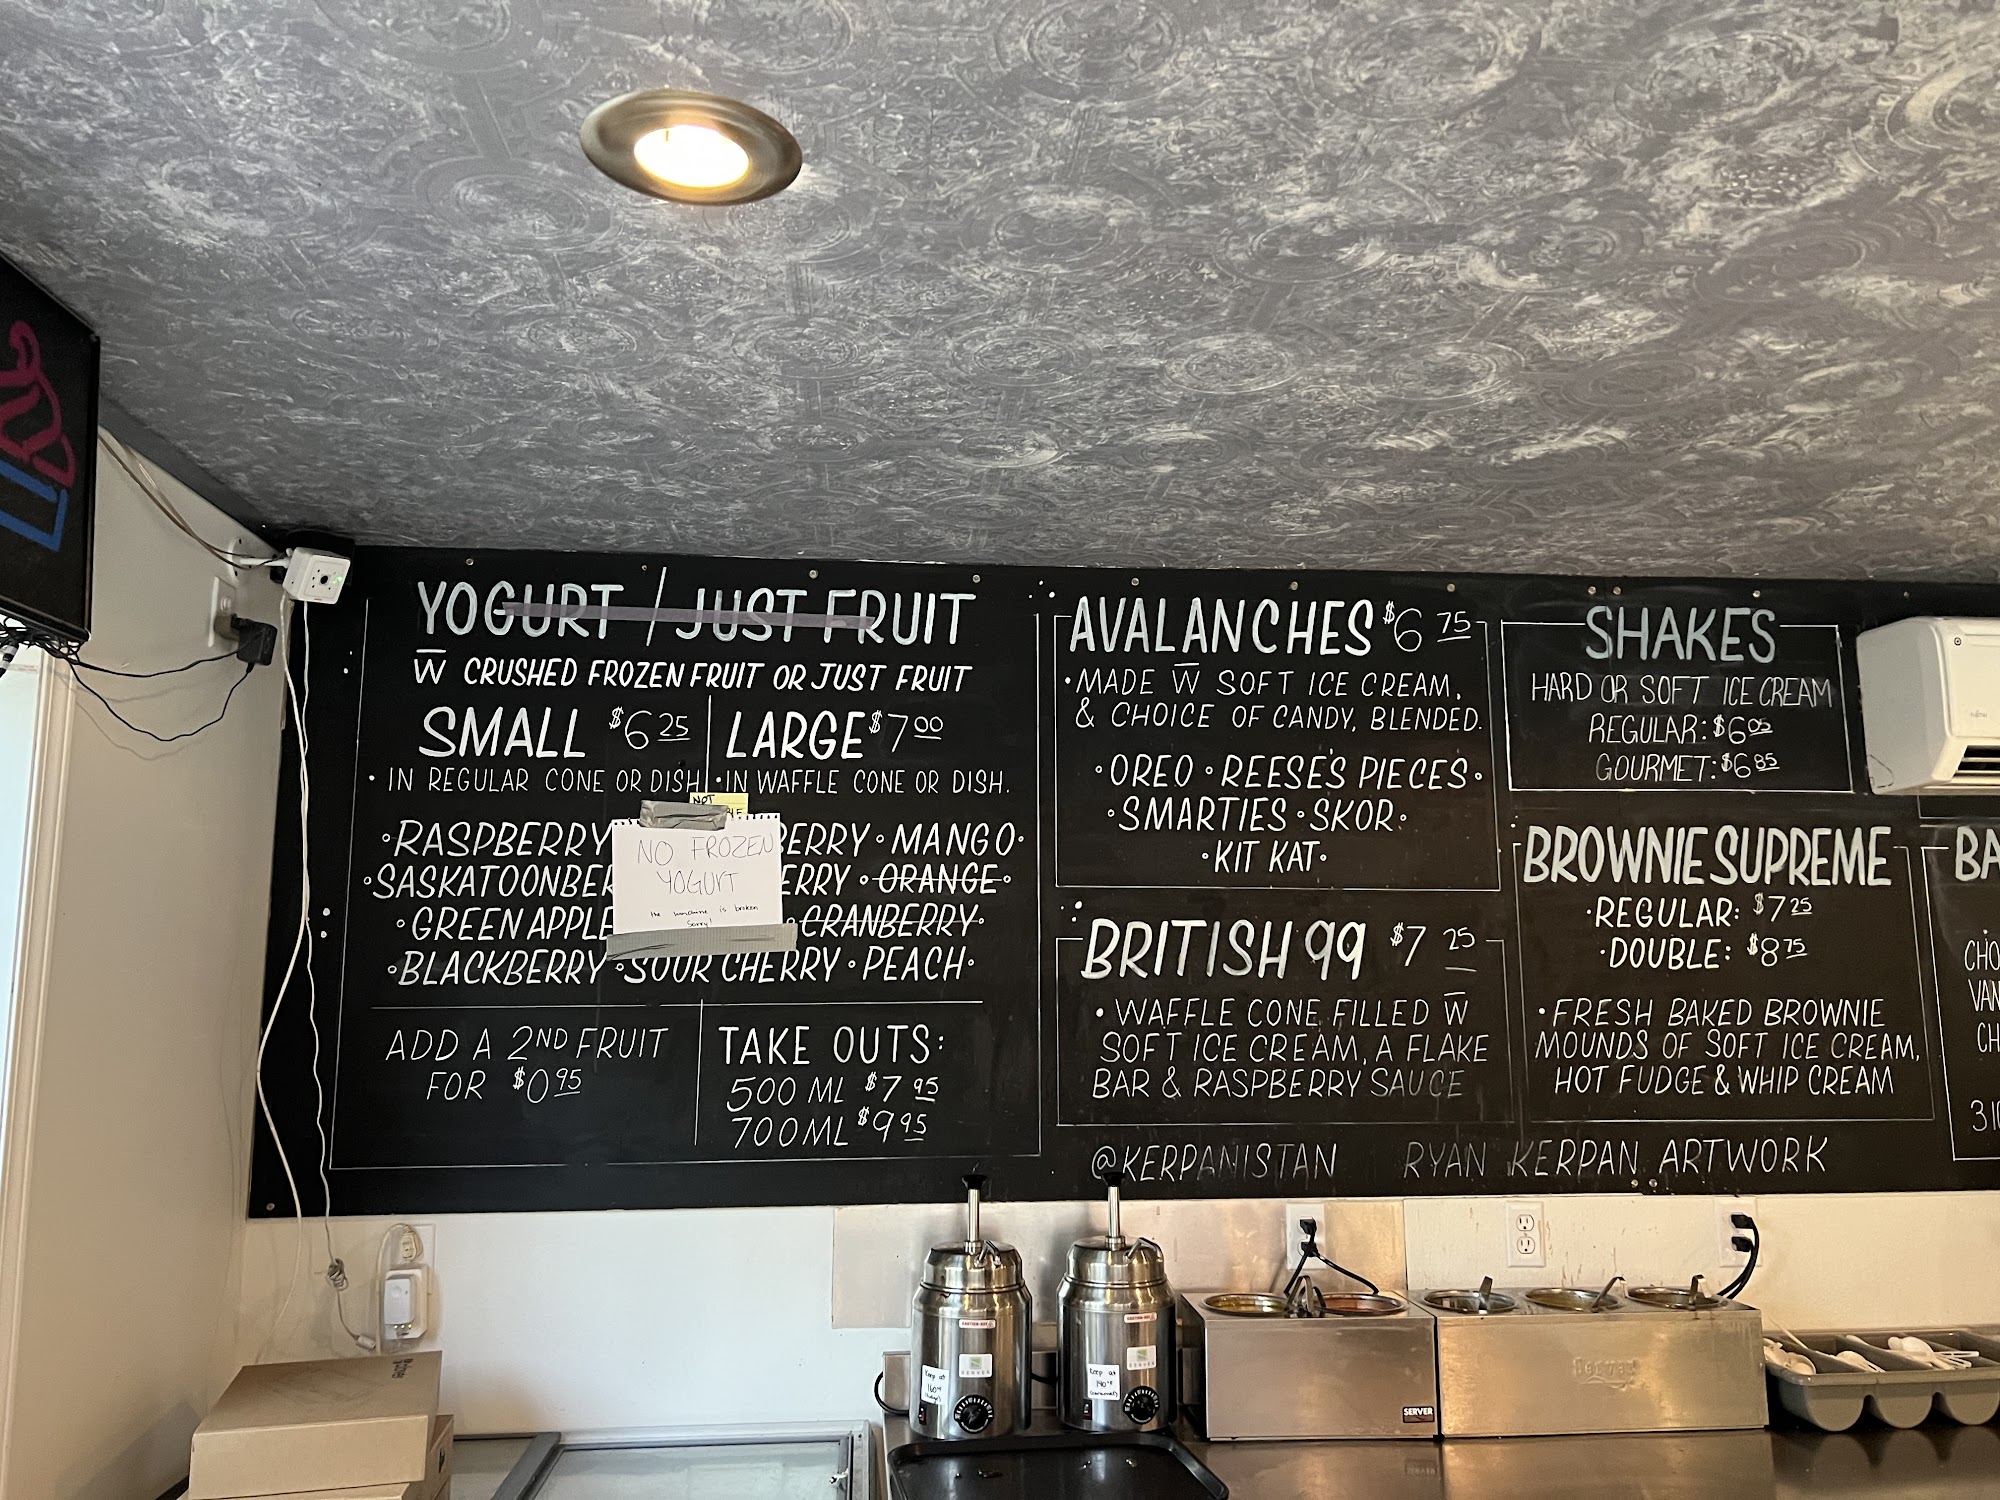 YOGURT / JUST FRUIT
W̅ CRUSHED FROZEN FRUIT OR JUST FRUIT
SMALL $6.25
• IN REGULAR CONE OR DISH
LARGE $7.00
• IN WAFFLE CONE OR DISH.
NOT
NO FROZEN
YOGURT
the machine is broken
Sorry!
•RASPBERRY BERRY • MANGO•
•SASKATOONBER ERRY • ORANGE•
•GREEN APPLE • CRANBERRY•
•BLACKBERRY •SOUR CHERRY • PEACH•
ADD A 2ND FRUIT
FOR $0.95
TAKE OUTS:
500 ML $7.95
700ML $9.95
AVALANCHES $6.75
•MADE W̅ SOFT ICE CREAM,
& CHOICE OF CANDY, BLENDED.
•OREO •REESE'S PIECES•
•SMARTIES •SKOR•
•KIT KAT•
BRITISH 99 $7.25
• WAFFLE CONE FILLED W̅
SOFT ICE CREAM, A FLAKE
BAR & RASPBERRY SAUCE
SHAKES
HARD OR SOFT ICE CREAM
REGULAR: $6.05
GOURMET: $6.85
BROWNIE SUPREME
•REGULAR: $7.25
•DOUBLE: $8.75
•FRESH BAKED BROWNIE
MOUNDS OF SOFT ICE CREAM,
HOT FUDGE & WHIP CREAM
BA
CHO
VAN
CH
@KERPANISTAN RYAN KERPAN ARTWORK
CAUTION-HOT
SERVER
Keep at
160°
CAUTION-HOT
SERVER
Keep at
140°
SERVER
Server